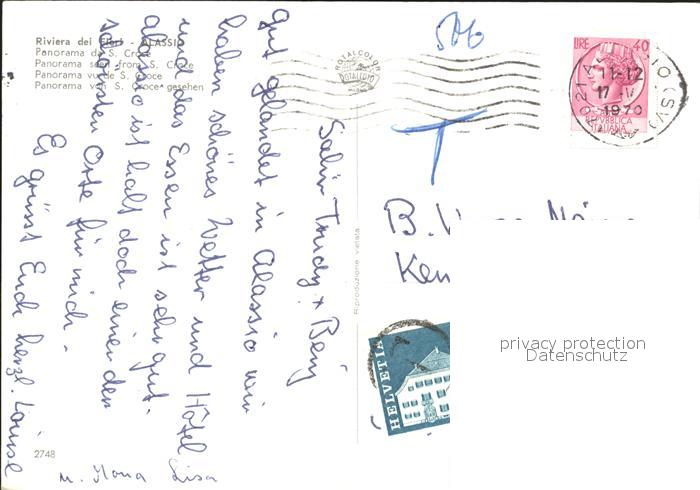 Riviera dei Fiori - ALASSIO
Panorama da S. Croce
Panorama seen from S. Croce
Panorama vu de S. Croce
Panorama von S. Croce gesehen
ROTALCOLOR
ROTALFOTO
506
LIRE 40
REPVBBLICA
ITALIANA
11-12
17 - IV
1970
(SV)
T
Salü Trudy + Beny
gut gelandet in Alassio wir
haben schönes Wetter und Hôtel
und das Essen ist sehr gut.
alassio ist halt doch einer der
schönsten Orte für mich.
Es grüsst Euch herzl. Louise
u. Ilona Lisa
2748
Riproduzione vietata
B.
Ken
HELVETIA
privacy protection
Datenschutz